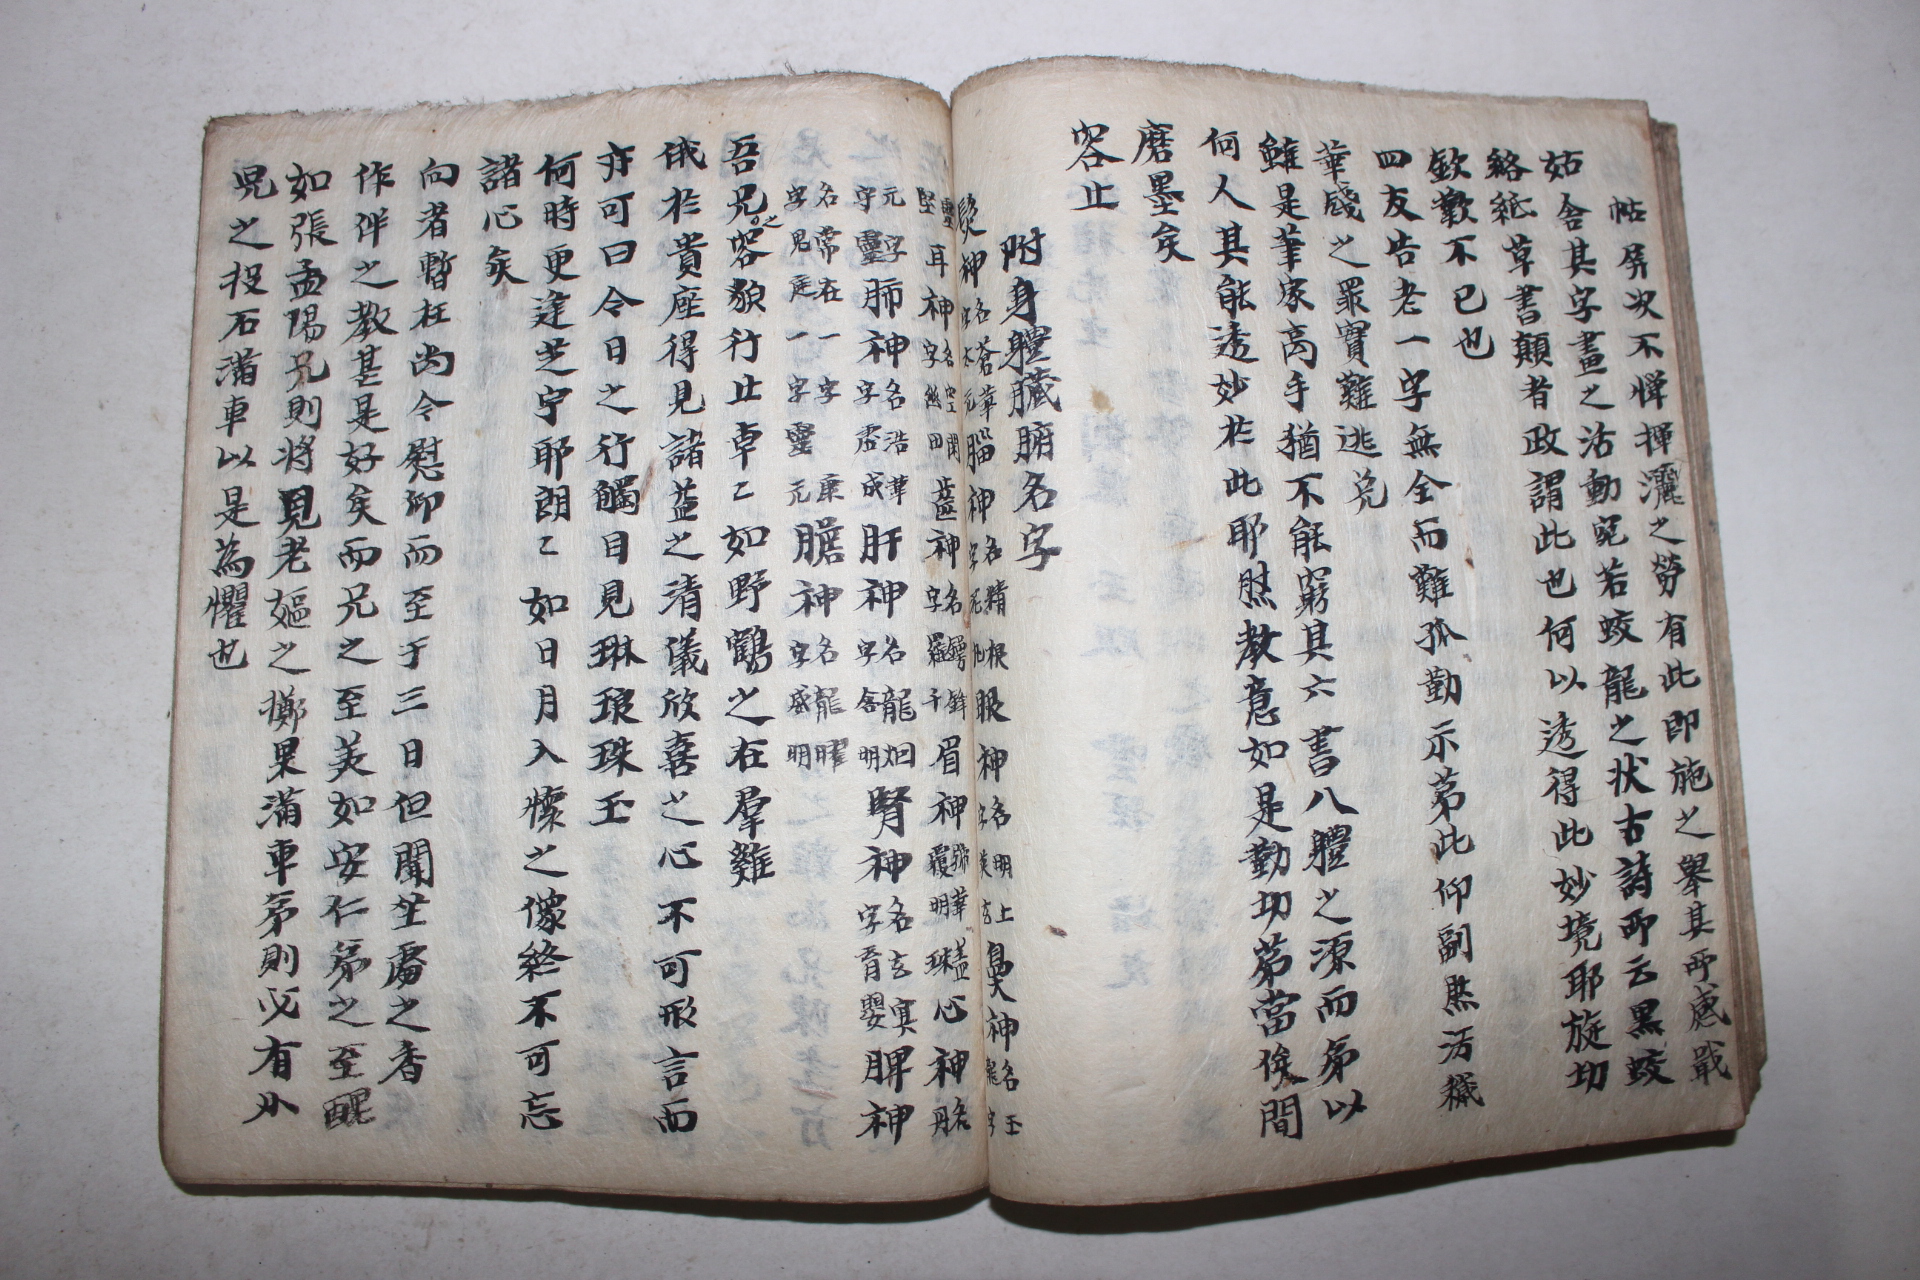 帖屛次不憚揮灑之勞有此卽施之擧其所感戢
姑舍其字畫之活動宛若蛟龍之狀古詩所云黑蛟
絡紙草書顚者政謂此也何以透得此妙境耶旋切
欽歎不已也
四友告老一字無全而難孤勤示苐此仰副然活穢
華牋之罪實難逃兑
雖是筆家高手猶不能窮其六書八體之源而苐以
何人其能透妙於此耶然敎意如是勤切苐當俟間
磨墨矣
容止
附身體臟腑名字
髮神名蒼華字太元腦神名精根字泥丸眼神名明上字英玄鼻神名玉龍字
靈堅耳神名空閑字幽田齒神名鍔鋒字羅千眉神名華蓋心神名丹
元字守靈肺神名浩華字虛成肝神名龍烟字含明腎神名玄冥字育嬰脾神
名常在一字康字䰟庭一字靈元膽神名龍曜字威明
吾兄之容貌行止卓〻如野鶴之在羣雞
俄於貴座得見諸益之淸儀欣喜之心不可形言而
亦可曰今日之行觸目見琳琅珠玉
何時更逢芝宇耶朗〻如日月入懷之像終不可忘
諸心矣
向者暫枉尙今慰仰而至于三日但聞坐處之香
作伴之敎甚是好矣而兄之至美如安仁苐之至醜
如張孟陽兄則將見老嫗之擲果滿車苐則必有小
兒之投石滿車以是爲懼也